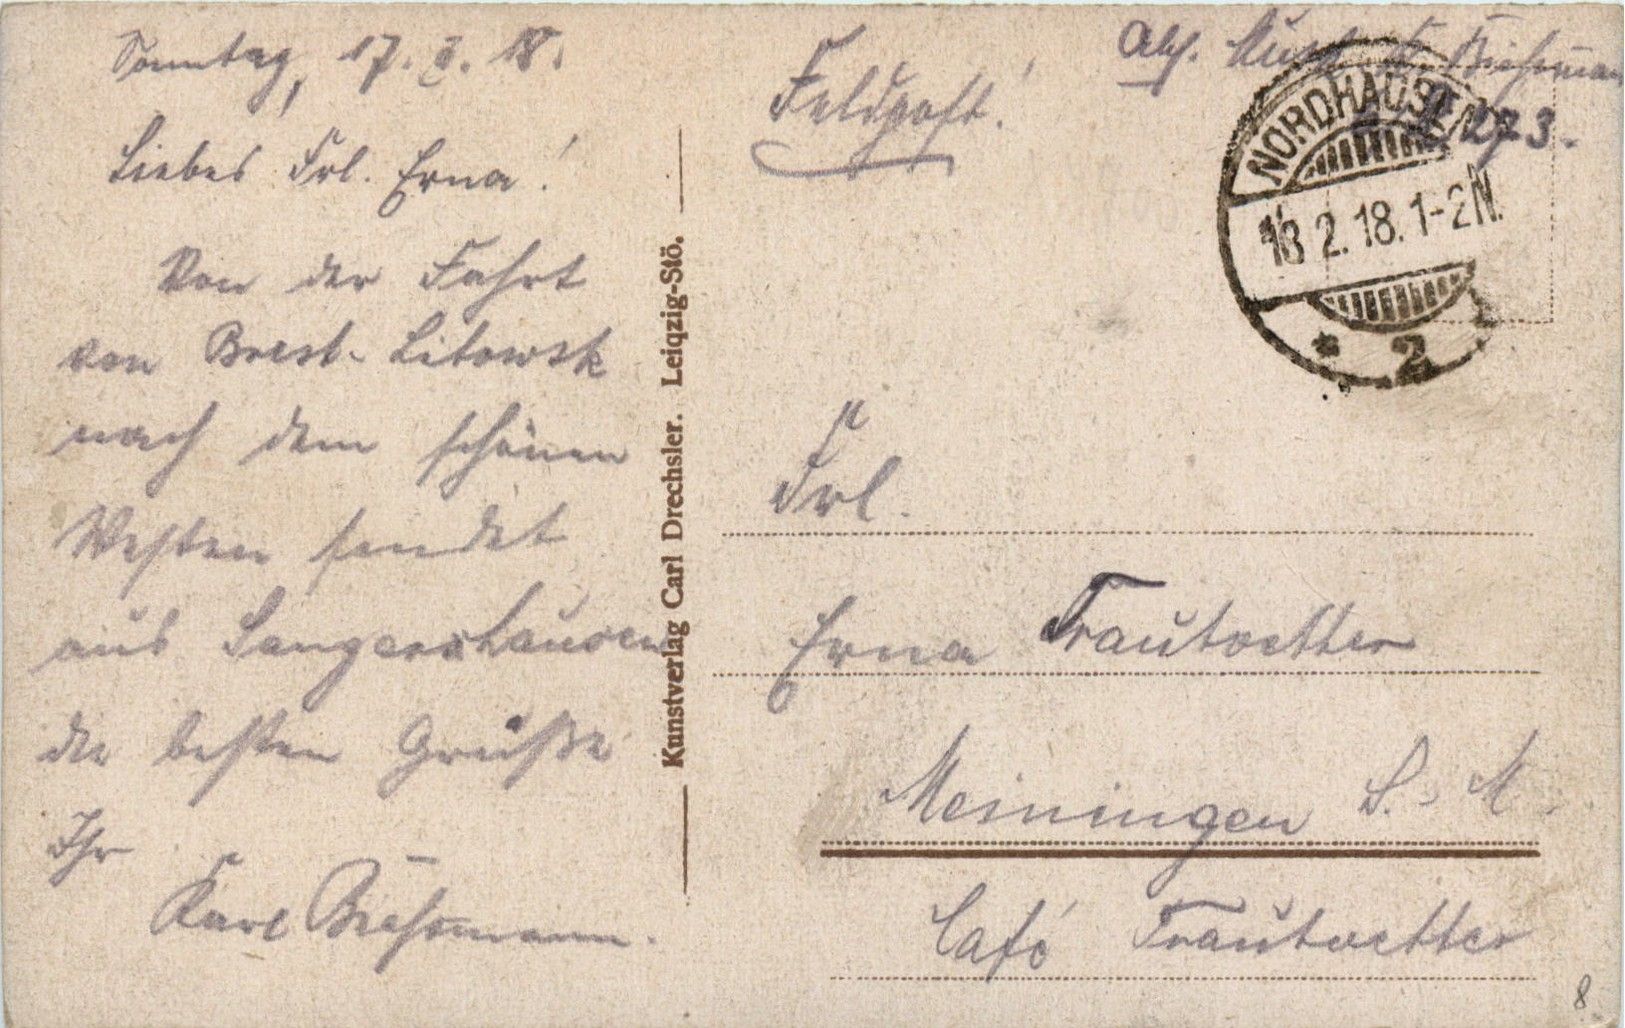 Sonntag, 17. II. 18.
Liebes Frl. Erna!
Von der Fahrt
von Brest-Litowsk
nach dem schönen
Westen sendet
aus Sangershausen
die besten Grüße
Ihr
Karl Bießmann.
Kunstverlag Carl Drechsler. Leipzig-Stö.
Feldpost!
Abs. K. Bießmann
273.
NORDHAUSEN
18 2. 18. 1-2 N.
* 2
Frl.
Erna Trautvetter
Meiningen S.-M.
Café Trautvetter
8